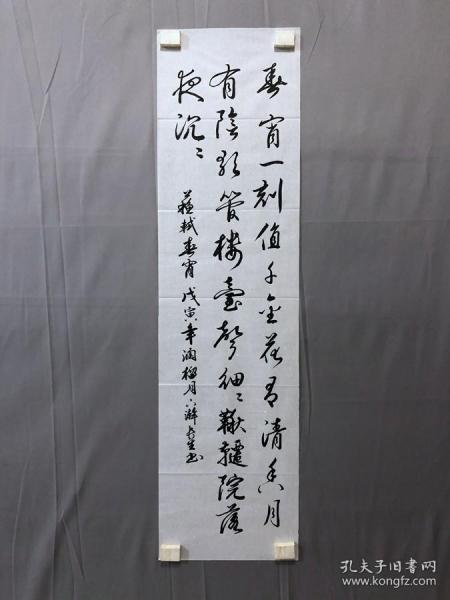 春宵一刻值千金花有清香月
有陰歌管樓臺聲細〻鞦韆院落
夜沉〻
蘇軾春宵 戊寅年 榴月 書
孔夫子旧书网
www.kongfz.com